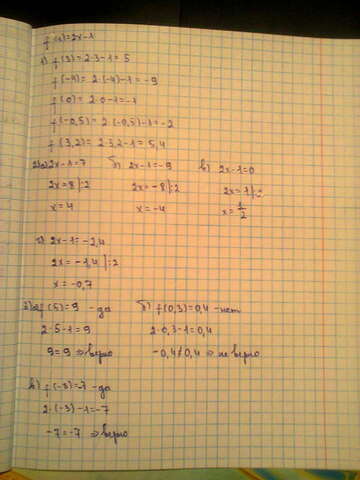 f(x)=2x-1
1) f(3)=2·3-1=5
f(-4)=2·(-4)-1=-9
f(0)=2·0-1=-1
f(-0,5)=2·(-0,5)-1=-2
f(3,2)=2·3,2-1=5,4
2) а) 2x-1=7 б) 2x-1=-9 в) 2x-1=0
2x=8|:2 2x=-8|:2 2x=1|:2
x=4 x=-4 x=1/2
г) 2x-1=-2,4
2x=-1,4|:2
x=-0,7
3) а) f(5)=9 -да б) f(0,3)=0,4 -нет
2·5-1=9 2·0,3-1=0,4
9=9 ⇒верно -0,4≠0,4 ⇒ не верно
в) f(-3)=-7 -да
2·(-3)-1=-7
-7=-7 ⇒верно